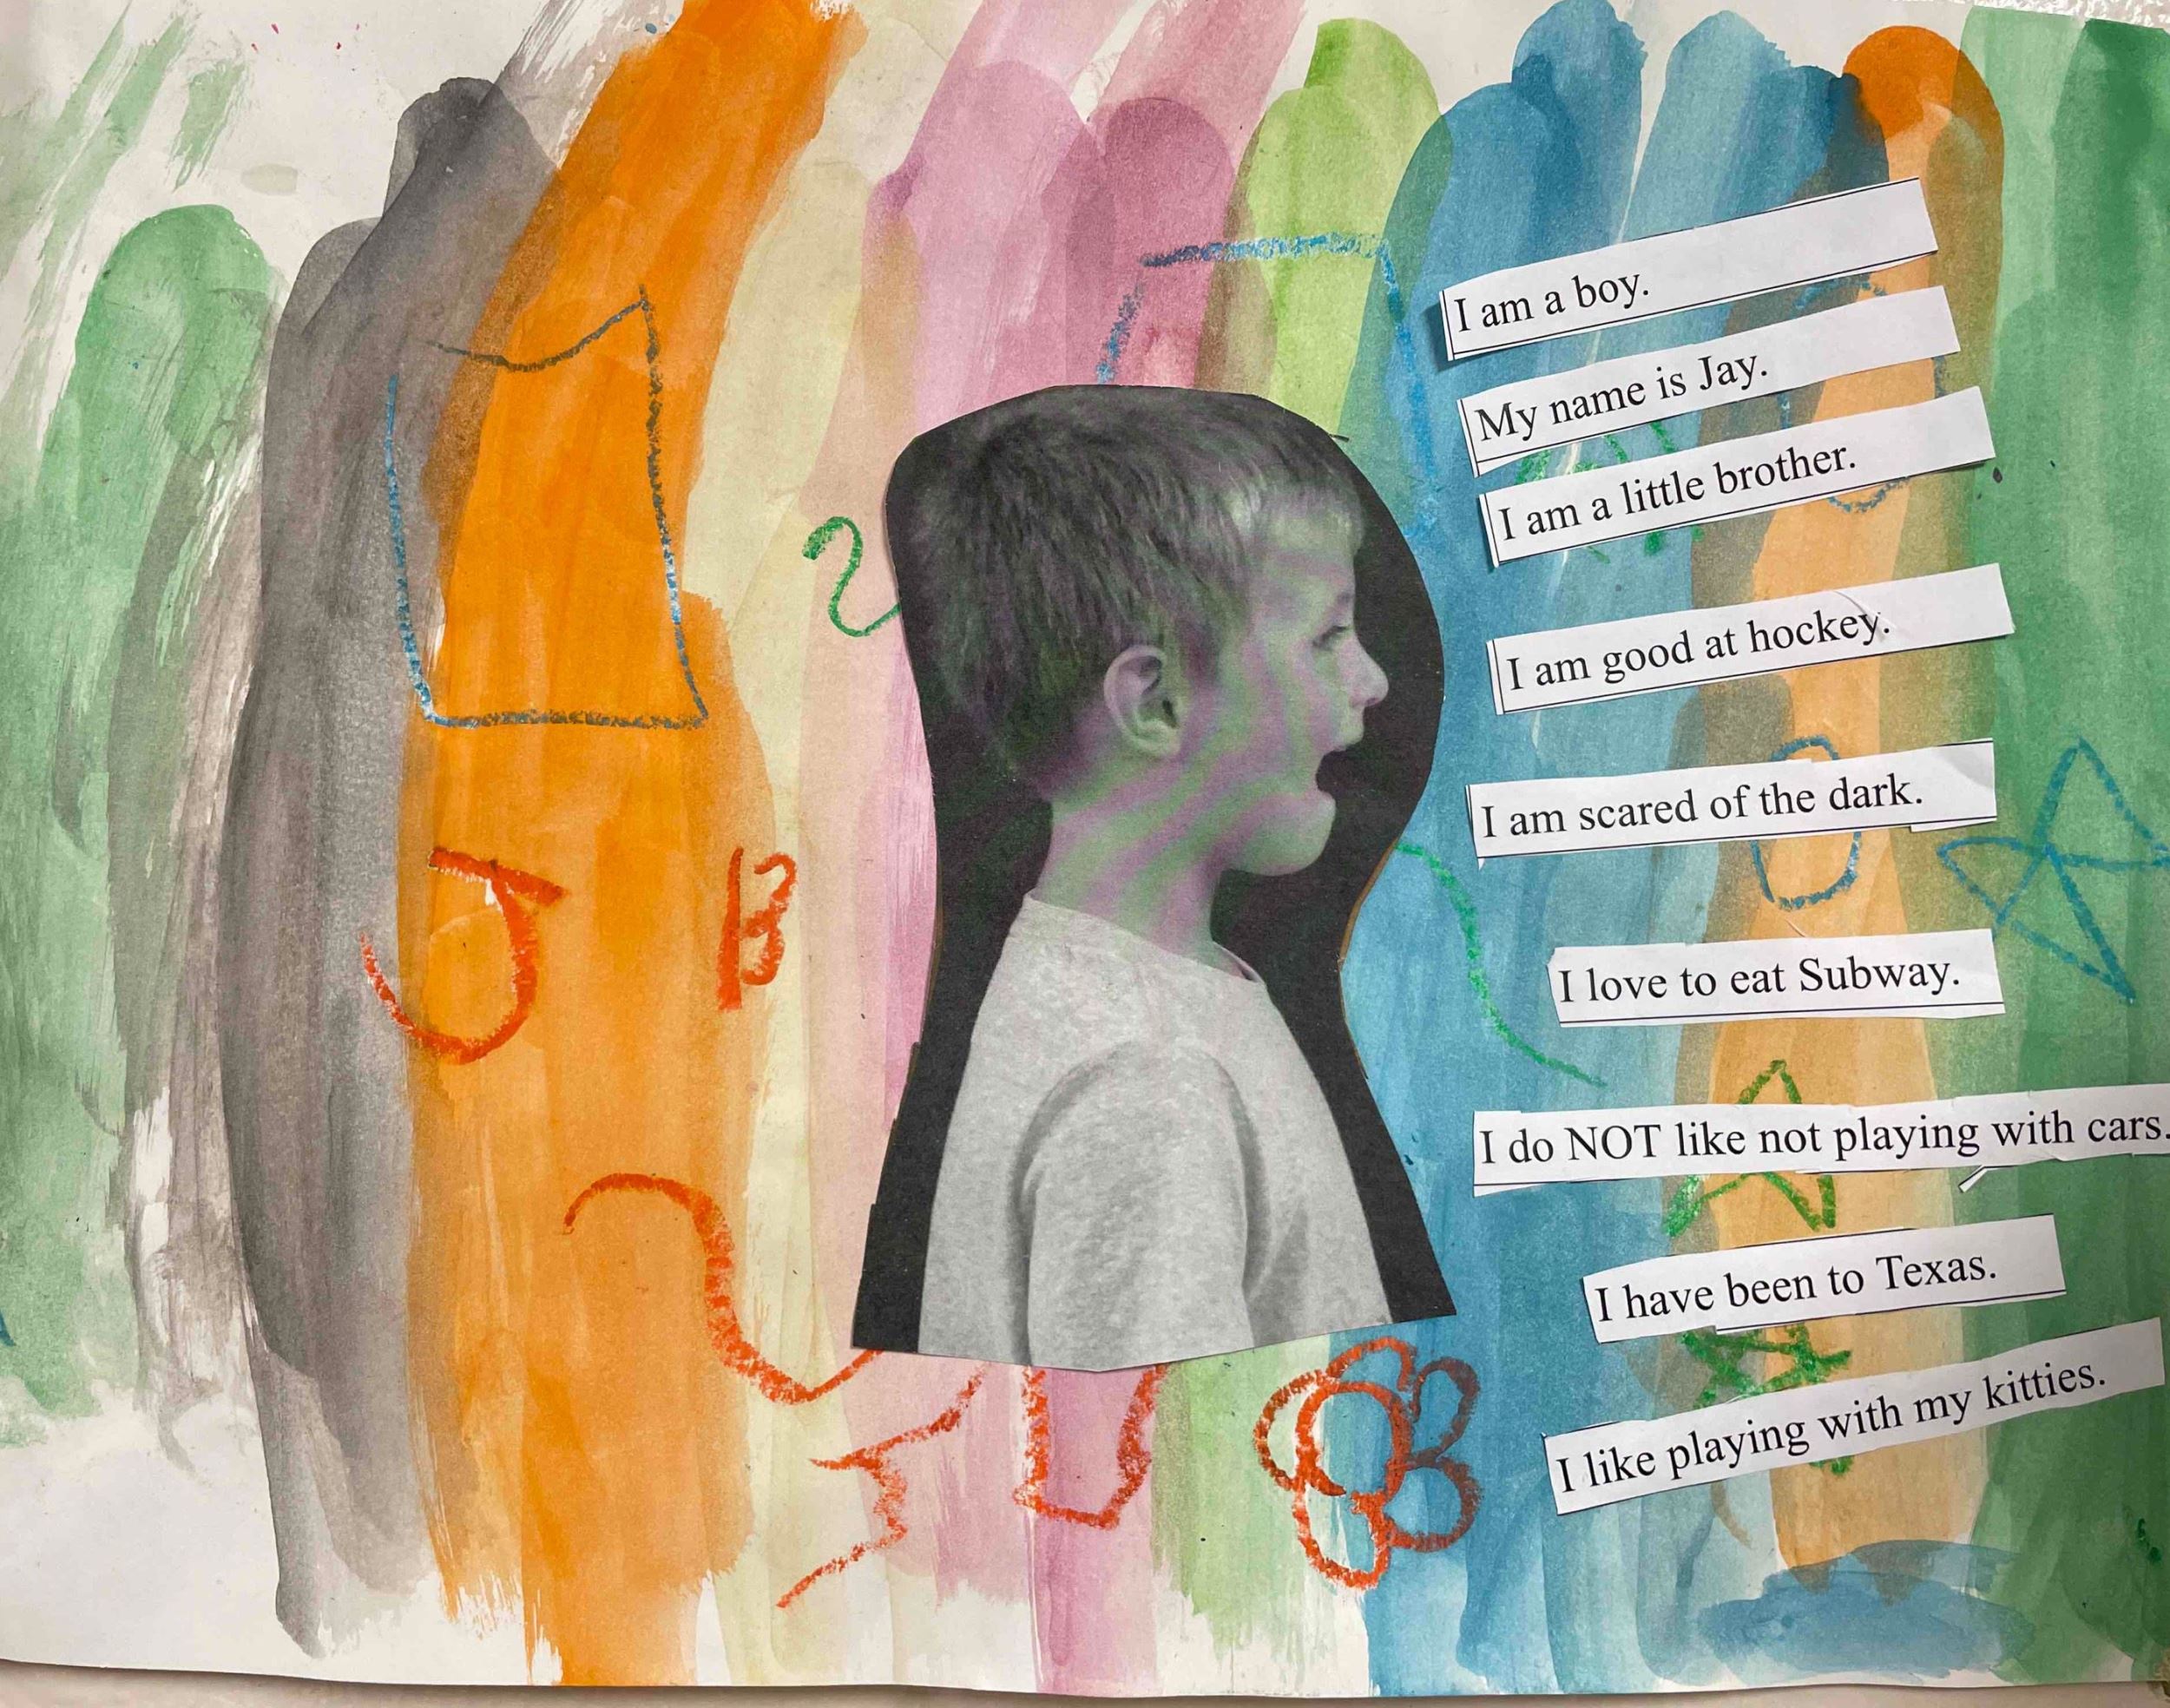 I am a boy.
My name is Jay.
I am a little brother.
I am good at hockey.
I am scared of the dark.
I love to eat Subway.
I do NOT like not playing with cars.
I have been to Texas.
I like playing with my kitties.
J B